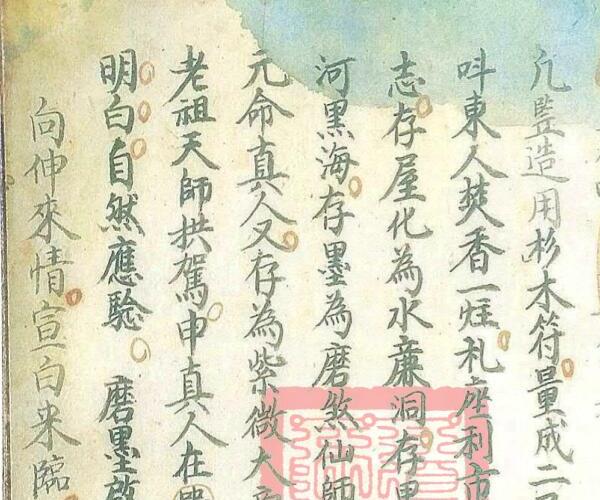 凢豎造用杉木符量成二
呌東人焚香一炷札座利市
志存屋化為水亷洞存
河黒海存墨為磨煞仙師
元命真人又存為紫微大
老祖天師拱駕申真人在
明白自然應驗磨墨啟
向伸來情宣白来臨